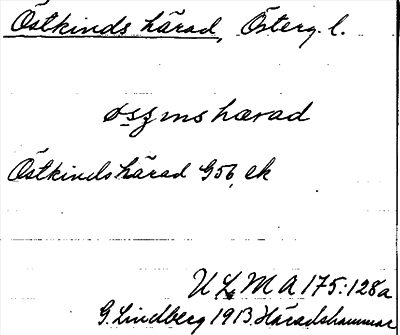 Östkinds härad, Österg. l.
øsʒins hærad
Östkinds härad G56, ek
U L M A 175:128a
G. Lindberg 1913. Häradshammar